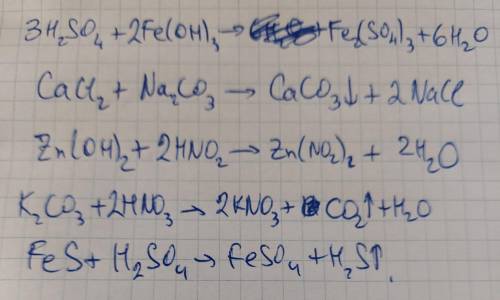 3H₂SO₄ + 2Fe(OH)₃ → Fe₂(SO₄)₃ + 6H₂O
CaCl₂ + Na₂CO₃ → CaCO₃↓ + 2NaCl
Zn(OH)₂ + 2HNO₂ → Zn(NO₂)₂ + 2H₂O
K₂CO₃ + 2HNO₃ → 2KNO₃ + CO₂↑ + H₂O
FeS + H₂SO₄ → FeSO₄ + H₂S↑.